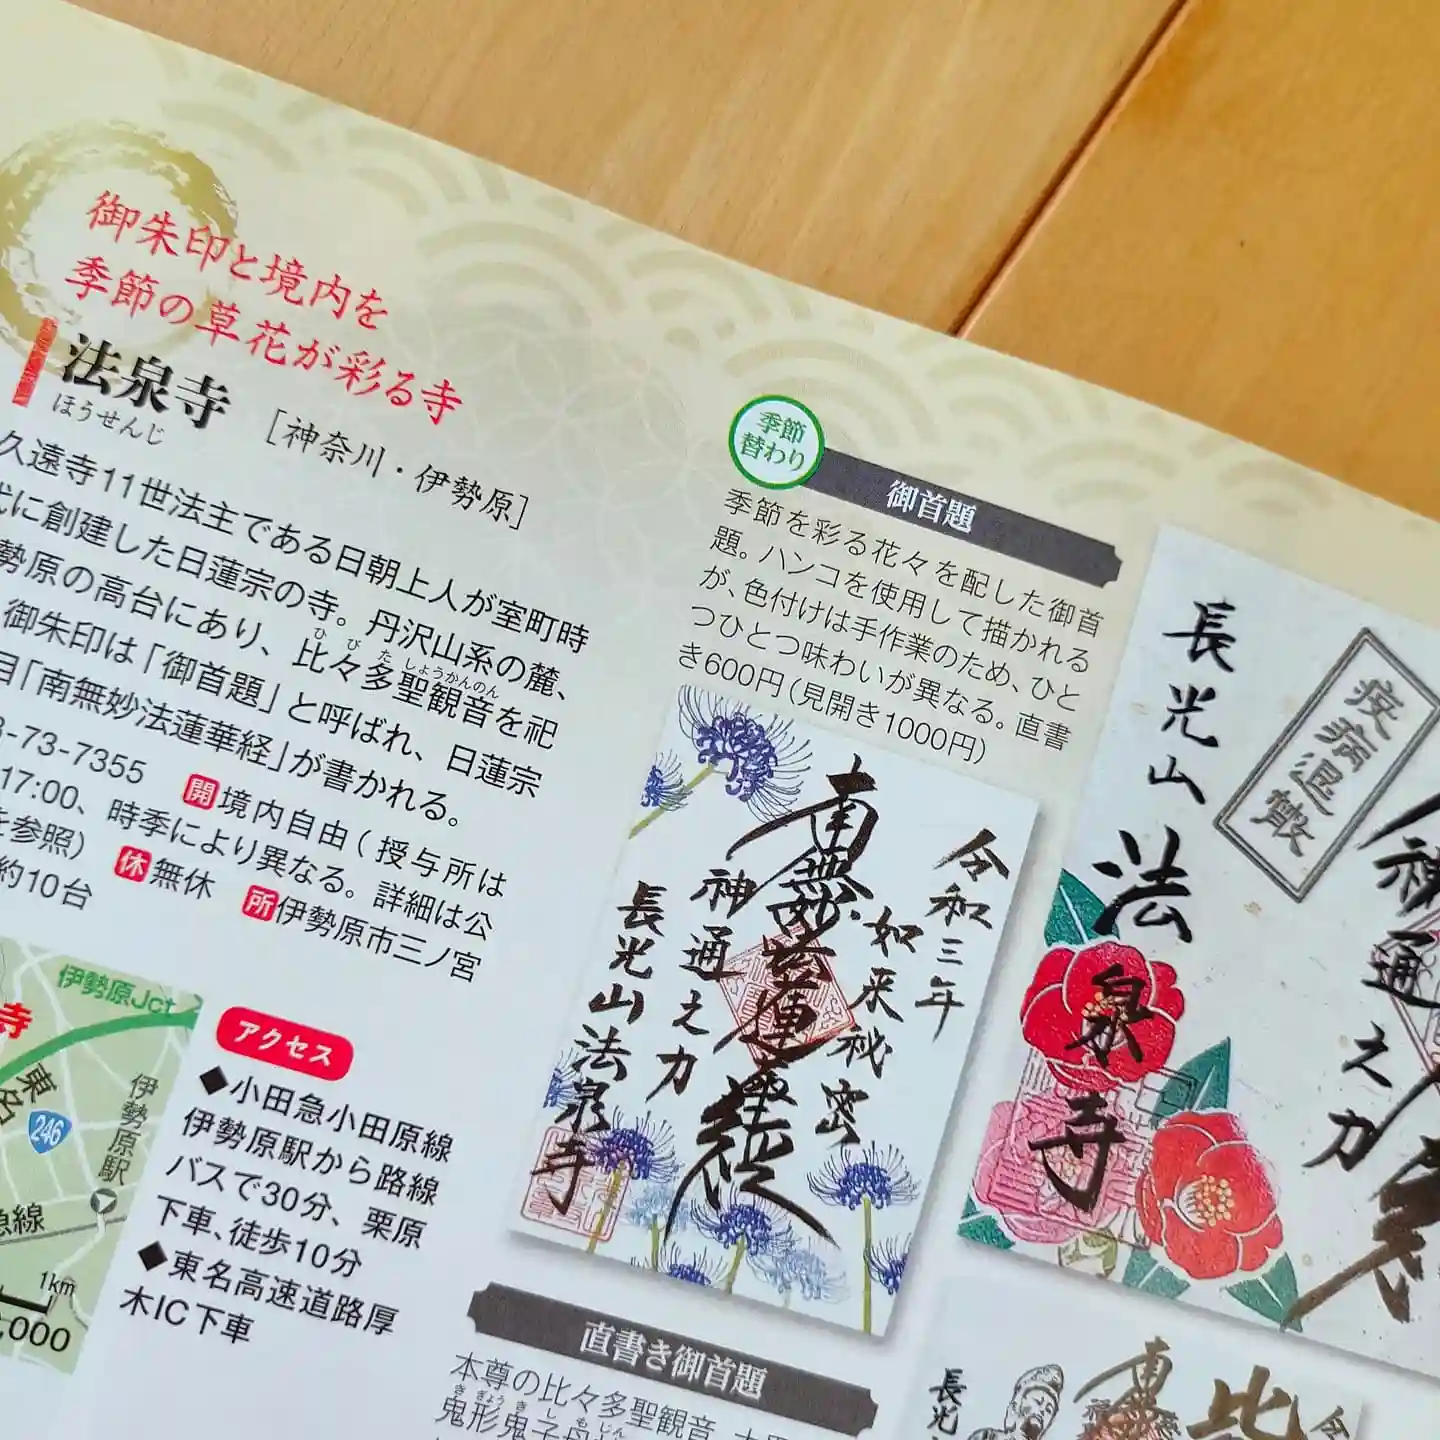 御朱印と境内を
季節の草花が彩る寺
法泉寺
ほうせんじ
［神奈川・伊勢原］
久遠寺11世法主である日朝上人が室町時
に創建した日蓮宗の寺。丹沢山系の麓、
勢原の高台にあり、比々多聖観音を祀
ひびたしょうかんのん
御朱印は「御首題」と呼ばれ、日蓮宗
目「南無妙法蓮華経」が書かれる。
3-73-7355 開境内自由（授与所は
17:00、時季により異なる。詳細は公
を参照） 休無休 所伊勢原市三ノ宮
約10台
伊勢原Jct
寺
東名
246
伊勢原駅
急線
1km
,000
アクセス
◆小田急小田原線
伊勢原駅から路線
バスで30分、栗原
下車、徒歩10分
◆東名高速道路厚
木IC下車
季節
替わり
御首題
季節を彩る花々を配した御首
題。ハンコを使用して描かれる
が、色付けは手作業のため、ひと
つひとつ味わいが異なる。直書
き600円（見開き1000円）
令和三年
如来秘密
南無妙法蓮華経
神通之力
長光山法泉寺
疫病退散
神通之力
長光山
法泉寺
直書き御首題
本尊の比々多聖観音、
鬼形鬼子母
きぎょうきしもじん
長光
南
比
令